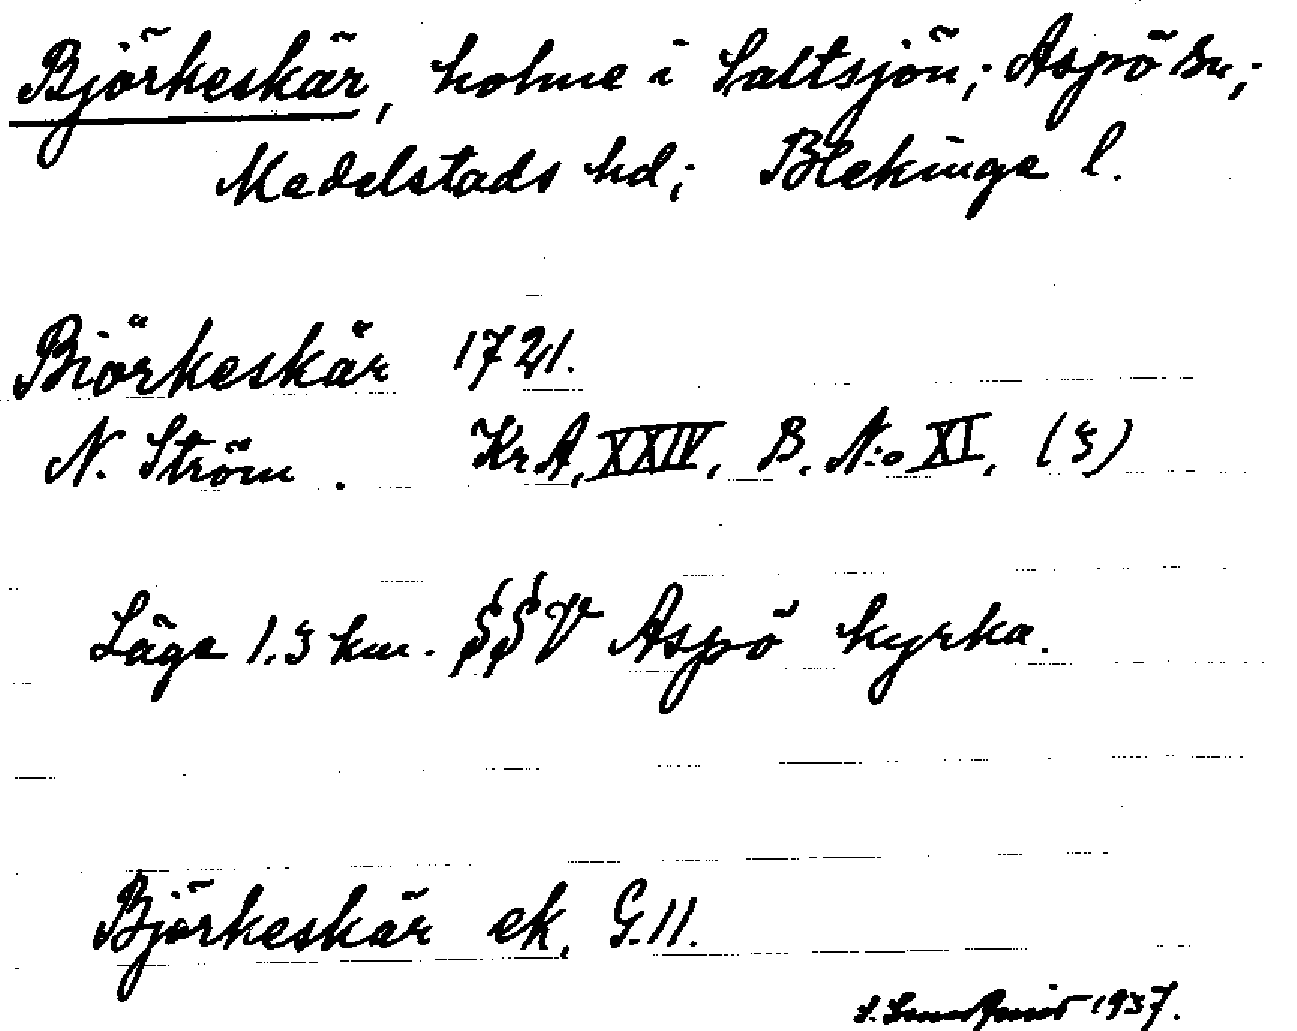 Björkeskär, holme i Saltsjön; Aspö sn;
Medelstads hd; Blekinge l.
Biörkeskär 1721.
N. Ström. KrA, XXIV, B. N:o XI, (3)
Läge 1.3 km. SSV Aspö kyrka.
Björkeskär ek. G.11.
1937.